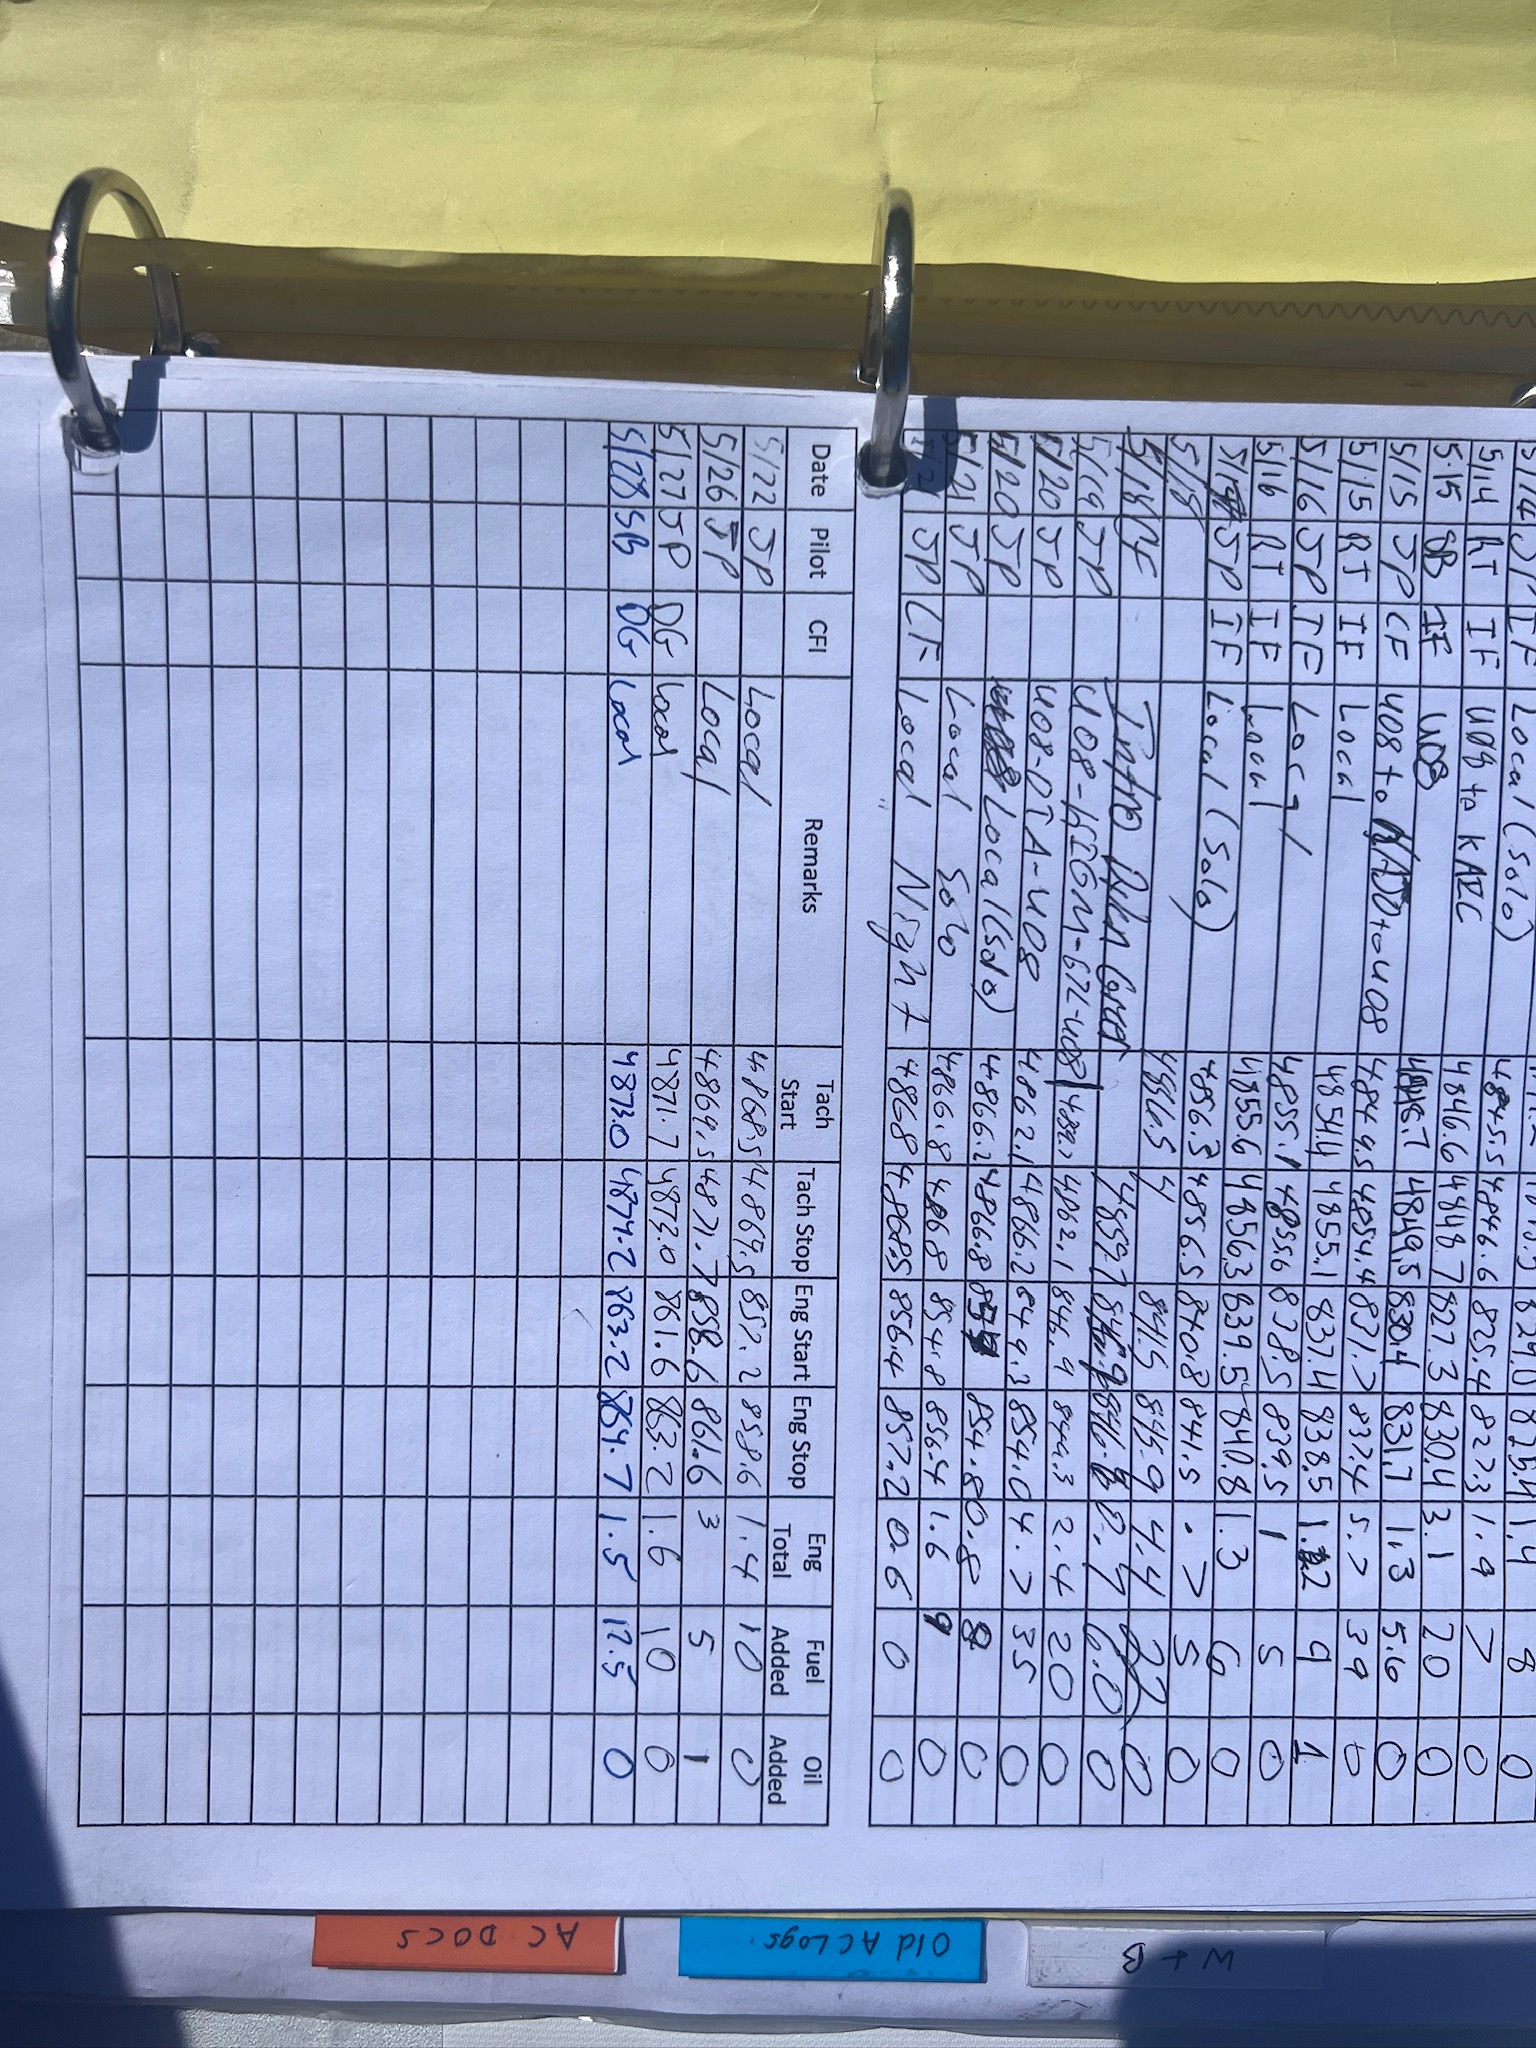 5/14 JP IF Local (Solo) 8 0
5/14 RT IF U08 to KAEC 4845.5 4846.6 825.4 827.3 1.9 7 0
5.15 SB IF U08 4846.6 4848.7 827.3 830.4 3.1 20 0
5/15 JP CF U08 to to U08 4849.5 830.4 831.7 1.3 5.6 0
5/15 RT IF Local 4849.5 4854.4 831.7 837.4 5.7 39 0
5/16 JP IF Local 4854.4 4855.1 837.4 838.5 9 1
5/16 RT IF Local 4855.1 4855.6 838.5 839.5 1 5 0
JP IF Local (Solo) 4855.6 4856.3 839.5 840.8 1.3 6 0
5/18 4856.3 4856.5 840.8 841.5 .7 5 0
5/18 CF Intro 4856.5 841.5 845.9 4.4 22 0
5/19 JP U08 - KIGM - 67L - U08 4859.7 6.0 0
5/20 JP U08-DTA-U08 4859.7 4862.1 846.9 849.3 2.4 20 0
5/20 JP Local (Solo) 4862.1 4866.2 849.3 854.0 4.7 35 0
5/21 JP Local Solo 4866.2 4866.8 854.8 0.8 8 0
5/21 JP CF Local Night 4866.8 4868 854.8 856.4 1.6 9 0
4868 4868.5 856.4 857.2 0.6 0 0
Date Pilot CFI Remarks Tach Start Tach Stop Eng Start Eng Stop Eng Total Fuel Added Oil Added
5/22 JP Local 4868.5 4869.5 857.2 858.6 1.4 10 0
5/26 JP Local 4869.5 4871.7 858.6 861.6 3 5 1
5/27 JP DG Local 4871.7 4873.0 861.6 863.2 1.6 10 0
5/28 SB DG Local 4873.0 4874.2 863.2 864.7 1.5 12.5 0
W + B
Old AC Logs
AC DOCS